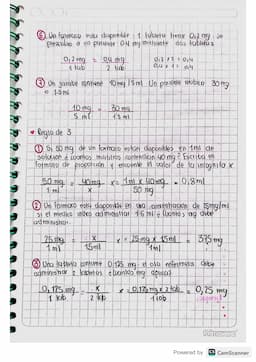 ⑥ Un farmaco esta disponible : 1 tableta tiene 0,2 mg. Se
prescribe a un paciente 0,4 mg mediante dos tabletas
0,2 mg = 0,4 mg
1 tab 2 tab
0,2 x 2 = 0,4
0,4 x 1 = 0,4
⑦ Un jarabe contiene 10 mg / 5 ml. Un paciente recibe 30 mg
= 15 ml
10 mg = 30 mg
5 ml 15 ml
• Regla de 3
① Si 50 mg de un farmaco estan disponibles en 1 ml de
solucion ¿cuantos mililitros contendran 40 mg? Escriba en
formato de proporcion y encuentre el valor de la incognita x
50 mg = 40 mg x = 1 ml x 40 mg = 0,8 ml
1 ml x 50 mg
② Un farmaco esta disponible en una concentración de 25 mg/ml
si el medico ordena administrar 15 ml ¿Cuantos mg debe
administrar
25 mg = x x = 25 mg x 15 ml = 375 mg
1 ml 15 ml 1 ml
③ Una tableta contiene 0,125 mg, si esta debe
administrar 2 tabletas ¿cuantos mg
0,125 mg = x x = 0,125 mg x 2 tab = 0,25 mg
1 tab 2 tab 1 tab
Powered by CS CamScanner